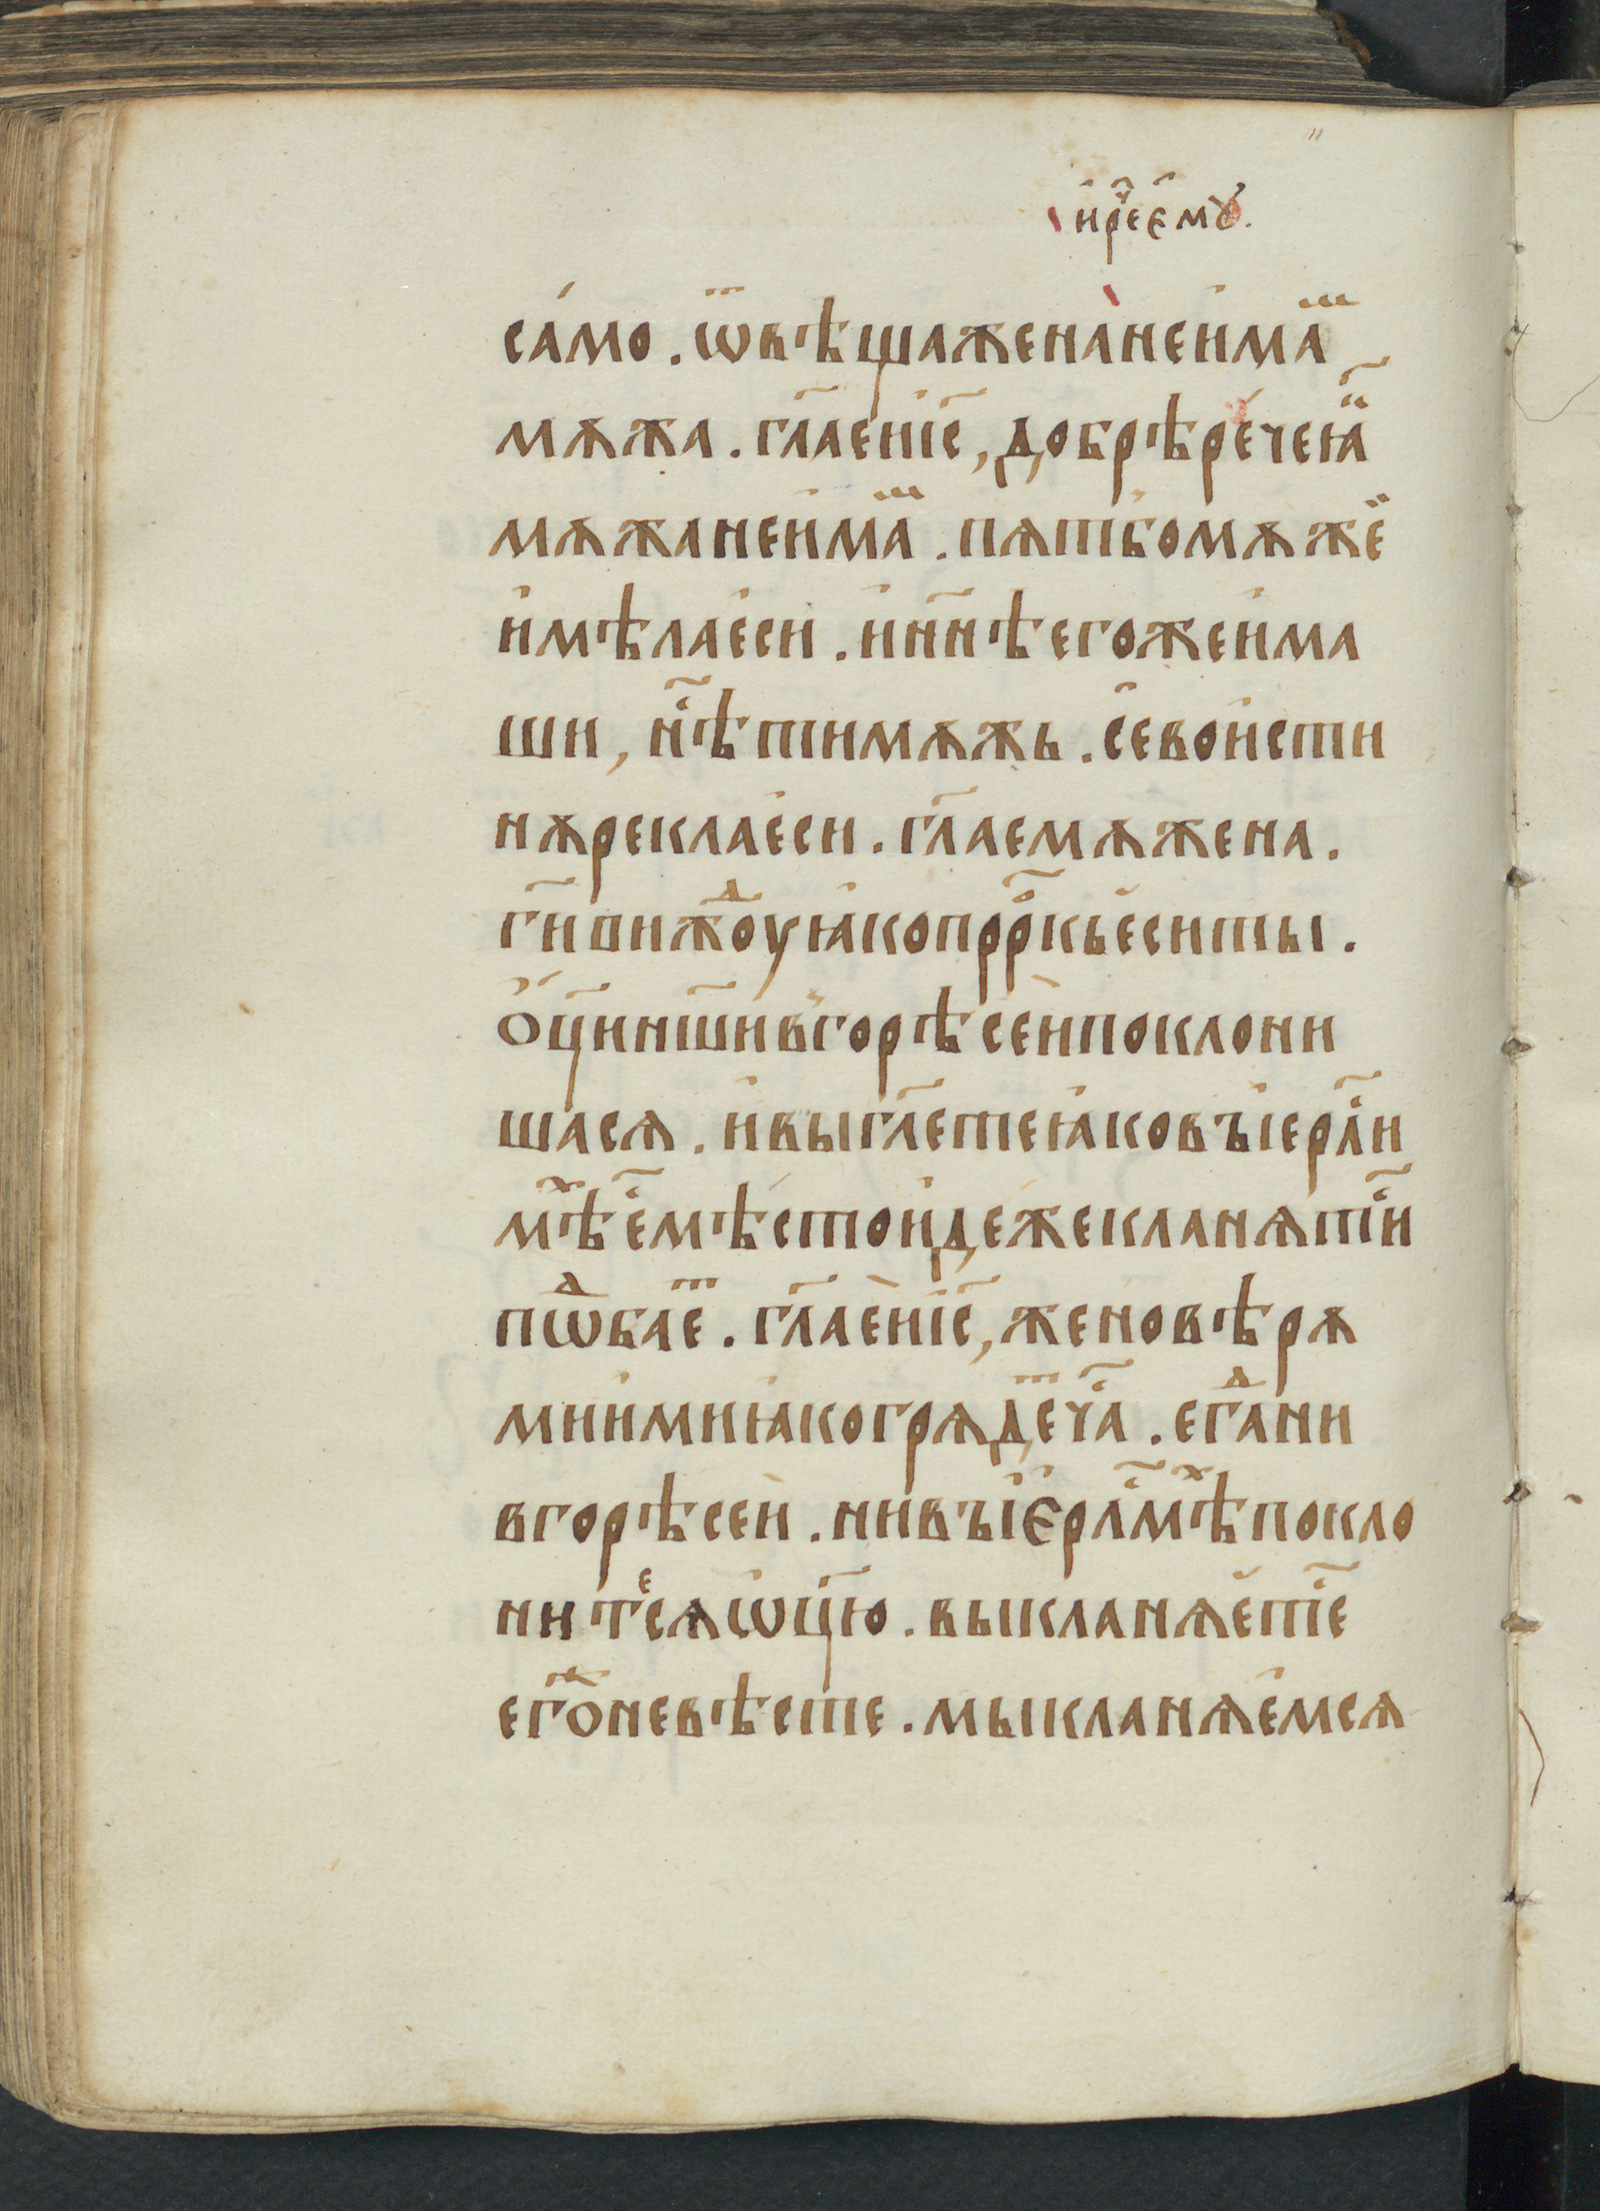 и҆рⷱ҇е є҆мꙋ.
са́мо. ѿвѣщажена̀неи҆маⷨ҇
мѫжа. гл҃ае҆ніс҃, добрѣре́чеꙗⷦ҇
мѫжанеи҆маⷨ҇. пѧтьбомѫже҆
и҆мѣлае҆си. и҆нн҃ѣегожеи҆ма
ши, нⷭ҇ѣтимѫжь. се҆вои҆сти
нѫреклае҆си. гл҃аемѫжена.
гн҃ивижⷣоуꙗ҆копрⷪ҇ркъе҆ситы.
Ѻ҆ц҃инш҃ивгорѣсе́и҆поклони
шасѧ. и҆выгл҃етеꙗ҆ковъіерⷭ҇ли
мⷯ҇ѣеⷭ҇мѣстои҆дежекланѧтиⷭ҇
пѡⷣбаеⷮ. гл҃ае҆ніс҃, женовѣрѫ
мнии҆миꙗ҆когрѧдеⷮчаⷭ҇. егⷣани
вгорѣсеи. нивъі҆є҆рⷭ҇лмⷯ҇ѣпокло
нитеⷭ҇сѧѡ҆ц҃ю. выкланѧе҆теⷭ҇
егѡⷤневѣсте. мыкланѧе҆мсѧ